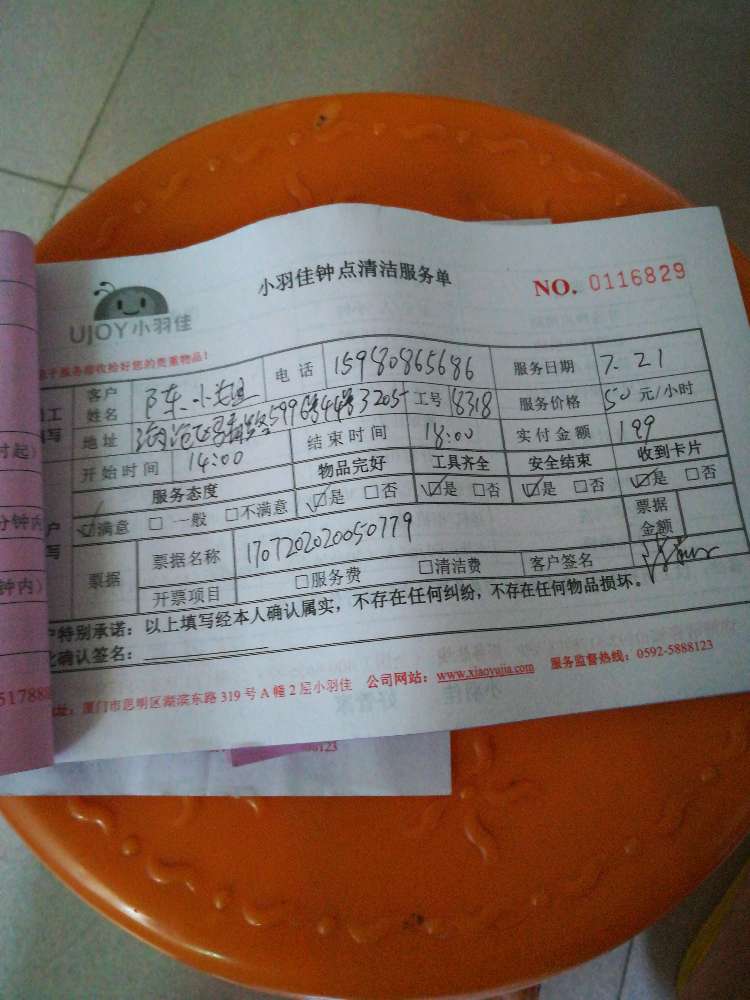 小羽佳钟点清洁服务单
NO. 0116829
UJOY小羽佳
服务应收拾好您的贵重物品!
客户姓名 陈小姐 电话 15980865686 服务日期 7.21
地址 599号44号3205 工号 8318 服务价格 50 元/小时
开始时间 14:00 结束时间 18:00 实付金额 199
服务态度 物品完好 工具齐全 安全结束 收到卡片
☑满意 □一般 □不满意 ☑是 □否 ☑是 □否 ☑是 □否 ☑是 □否
票据 票据名称 1707202020050779 票据金额
开票项目 □服务费 □清洁费 客户签名
特别承诺:以上填写经本人确认属实,不存在任何纠纷,不存在任何物品损坏。
确认签名:
址:厦门市思明区湖滨东路319号A幢2层小羽佳 公司网站:www.xiaoyujia.com 服务监督热线:0592-5888123
时起)
分钟内
钟内)
517888